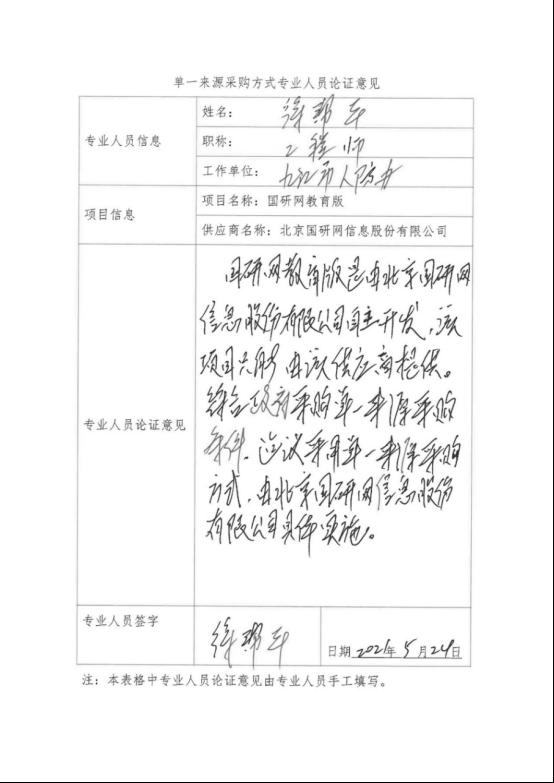 单一来源采购方式专业人员论证意见
专业人员信息
姓名：
职称：工程师
工作单位：九江市人防办
项目信息
项目名称：国研网教育版
供应商名称：北京国研网信息股份有限公司
专业人员论证意见
国研网教育版是由北京国研网
信息股份有限公司自主开发，该
项目只能由该供应商提供。
符合政府采购单一来源采购
条件，建议采用单一来源采购
方式，由北京国研网信息股份
有限公司具体实施。
专业人员签字
日期 2021年 5月24日
注：本表格中专业人员论证意见由专业人员手工填写。